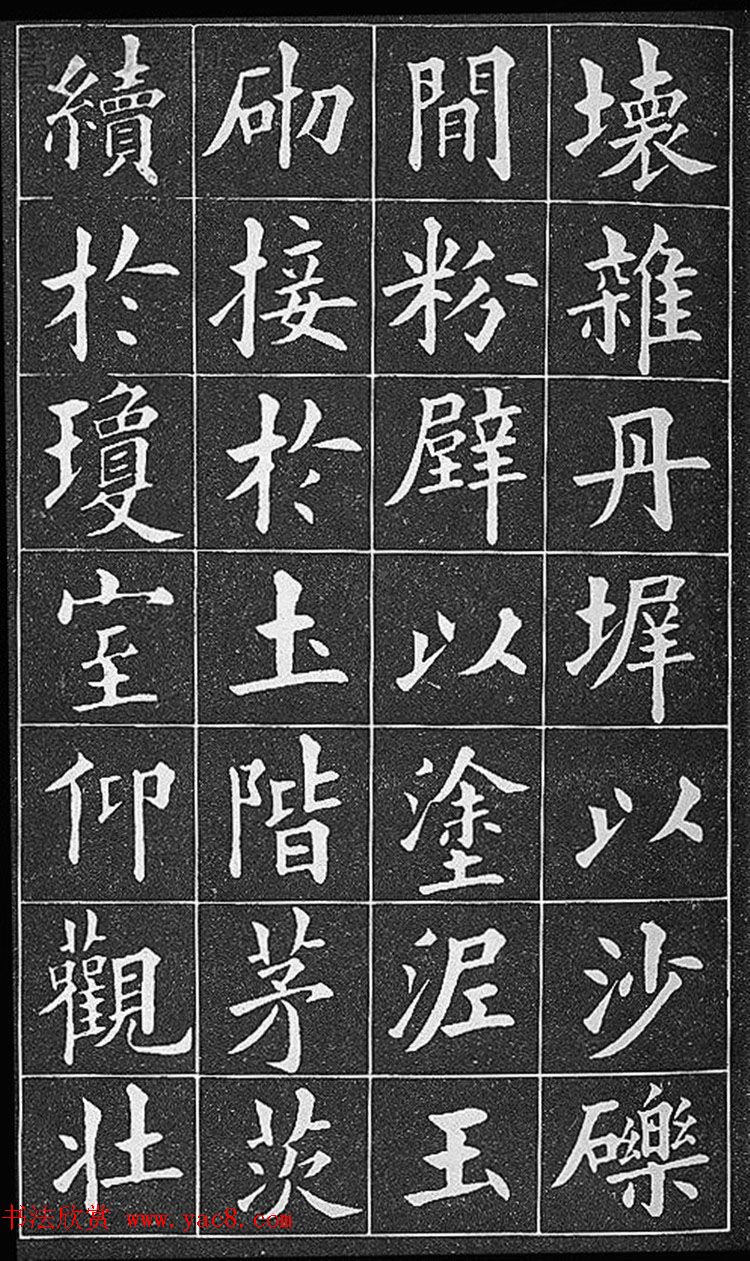 壞雜丹墀以沙礫
閒粉壁以塗泥玉
砌接於土階茅茨
續於瓊室仰觀壯
书法欣赏 www.yac8.com